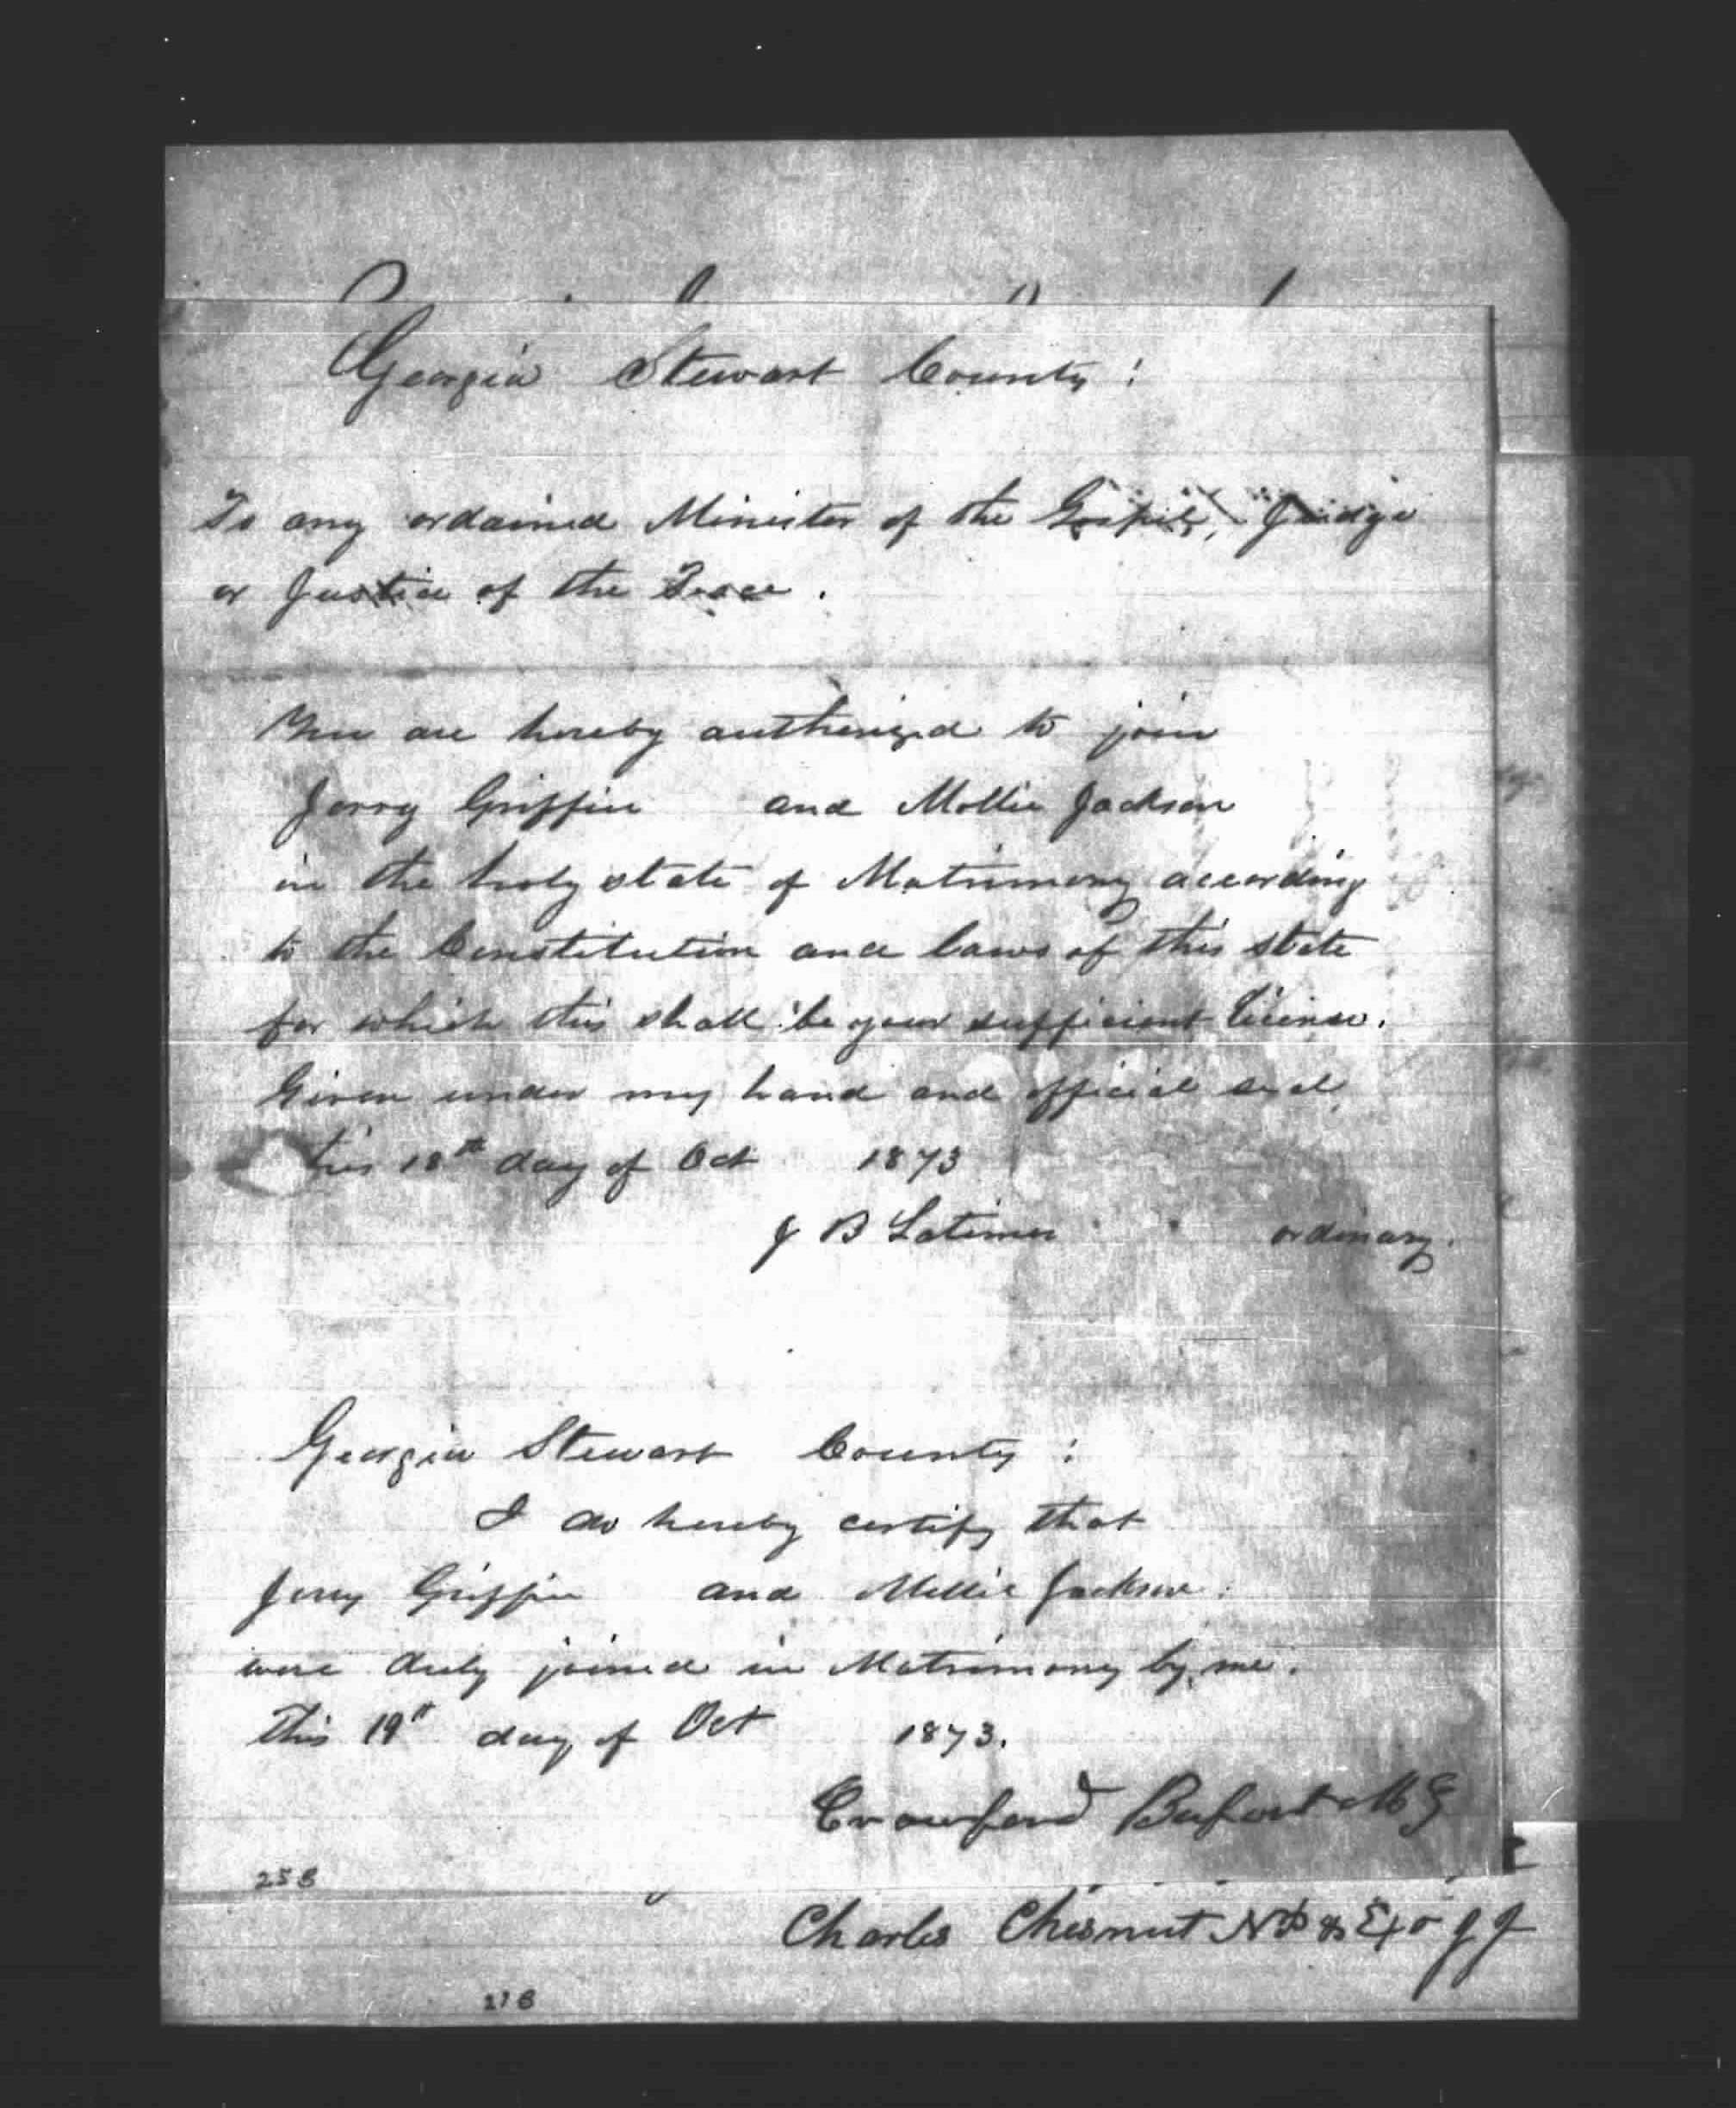 Georgia Stewart County :
To any ordained Minister of the Gospel, Judge
or Justice of the Peace .
You are hereby authorized to join
Jerry Griffin and Mollie Jackson
in the holy state of Matrimony according
to the Constitution and laws of this state
for which this shall be your sufficient license.
Given under my hand and official seal
this 18th day of Oct 1873
J B Latimer ordinary.
Georgia Stewart County :
I do hereby certify that
Jerry Griffin and Mollie Jackson
were duly joined in Matrimony by me.
This 19th day of Oct 1873.
Crawford Bufort M G
258
Charles Chesnut N P & Exo J P
218